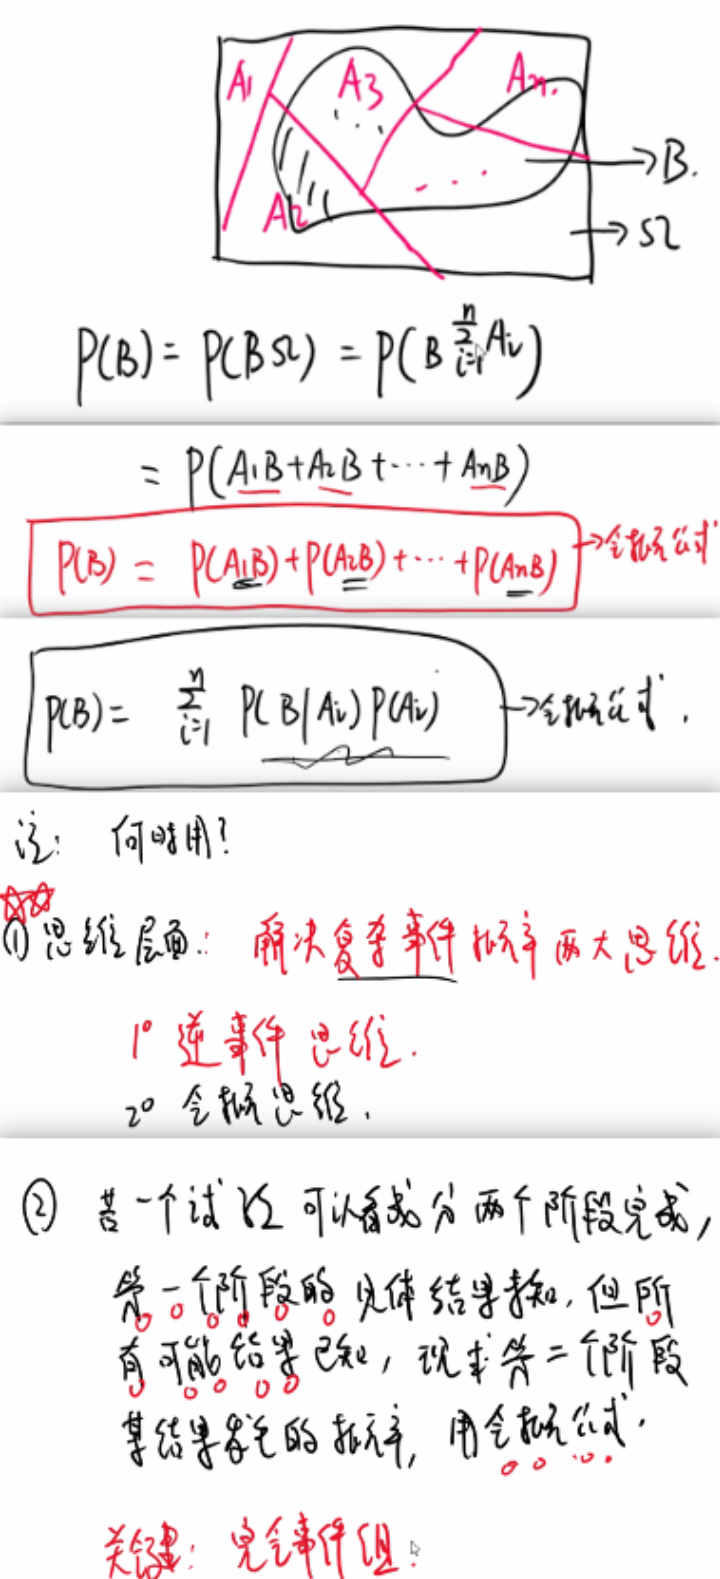 A₁ A₃ Aₙ.
...
→B.
A₂ ...
→Ω
P(B) = P(BΩ) = P(B∑ⁿᵢ₌₁Aᵢ)
= P(A₁B+A₂B+⋯+AₙB)
P(B) = P(A₁B)+P(A₂B)+⋯+P(AₙB) →全概公式
P(B) = ∑ⁿᵢ₌₁ P(B|Aᵢ)P(Aᵢ) →全概公式.
注: 何时用?
☆☆
① 思维层面: 解决复杂事件概率两大思维.
1° 逆事件思维.
2° 全概思维.
② 若一个试验可以看成分两个阶段完成,
第一个阶段的具体结果未知, 但所
有可能结果已知, 现求第二个阶段
某结果发生的概率, 用全概公式.
关键: 完全事件组.